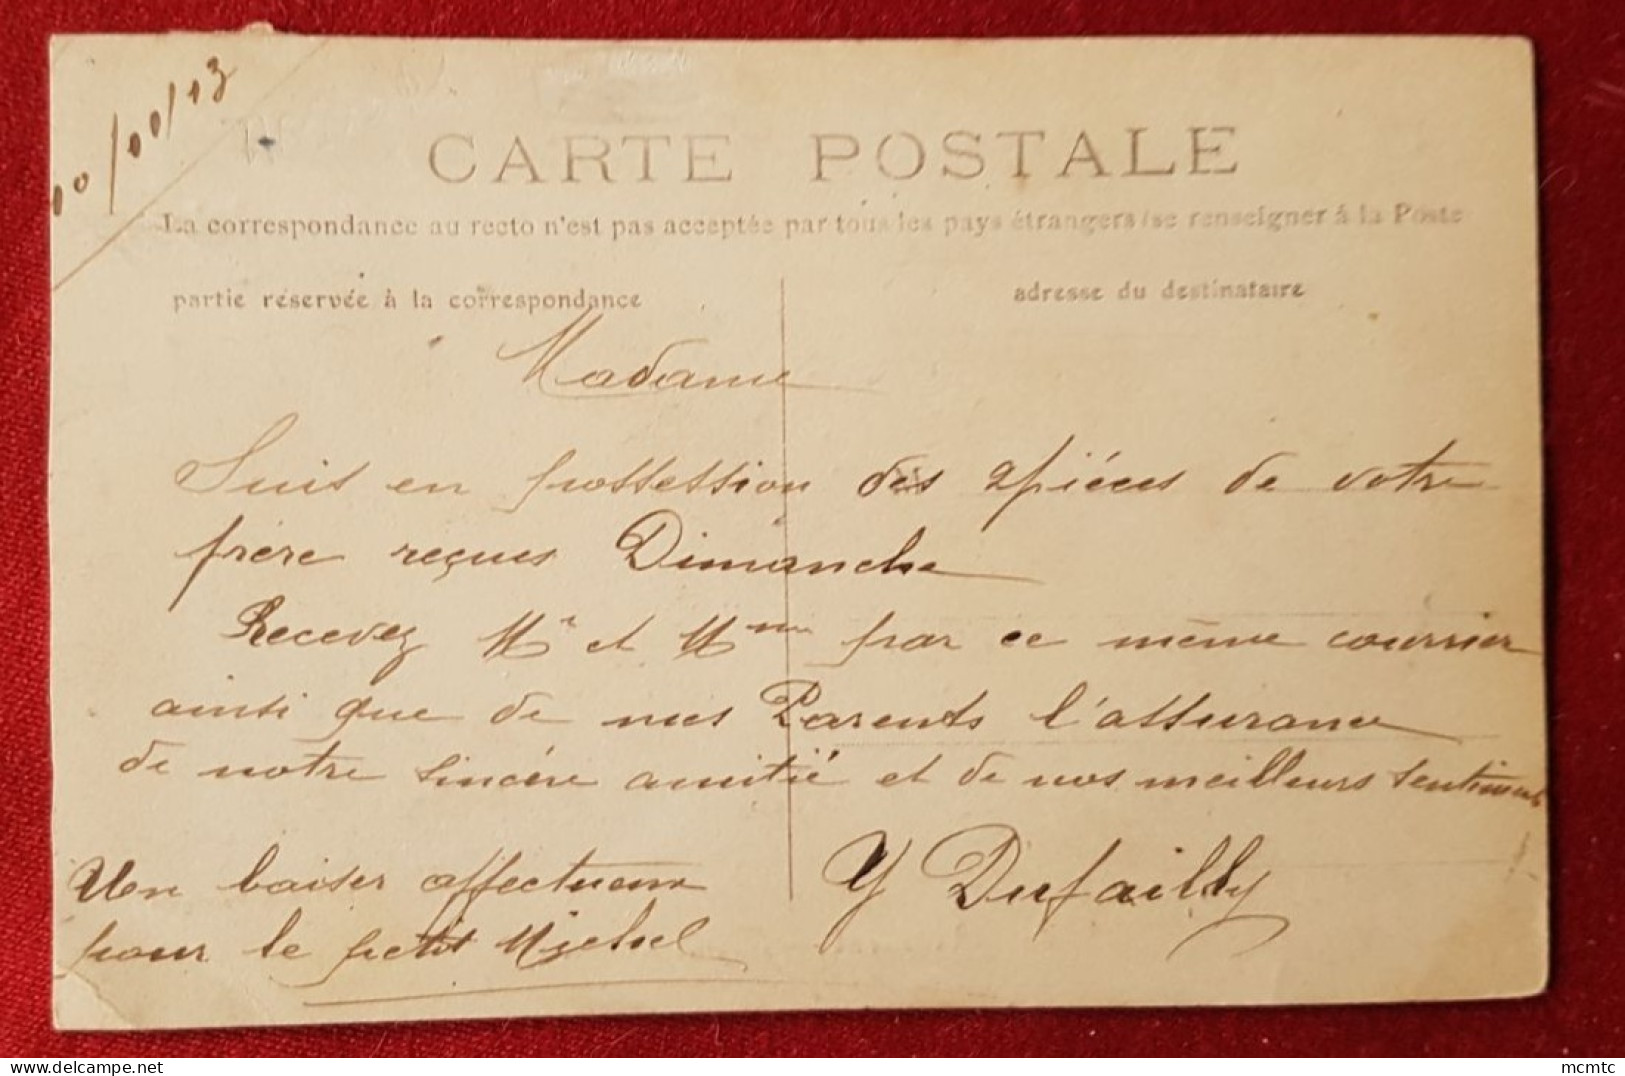 CARTE POSTALE
La correspondance au recto n'est pas acceptée par tous les pays étrangers (se renseigner à la Poste
partie réservée à la correspondance
adresse du destinataire
Madame
Suis en possession des 2 pièces de votre
frère reçues Dimanche
Recevez Mr et Mme par ce même courrier
ainsi que de mes Parents l'assurance
de notre sincère amitié et de nos meilleurs sentiments
Un baiser affectueux
pour le petit Michel
Y Dufailly
mcmtc
delcampe.net